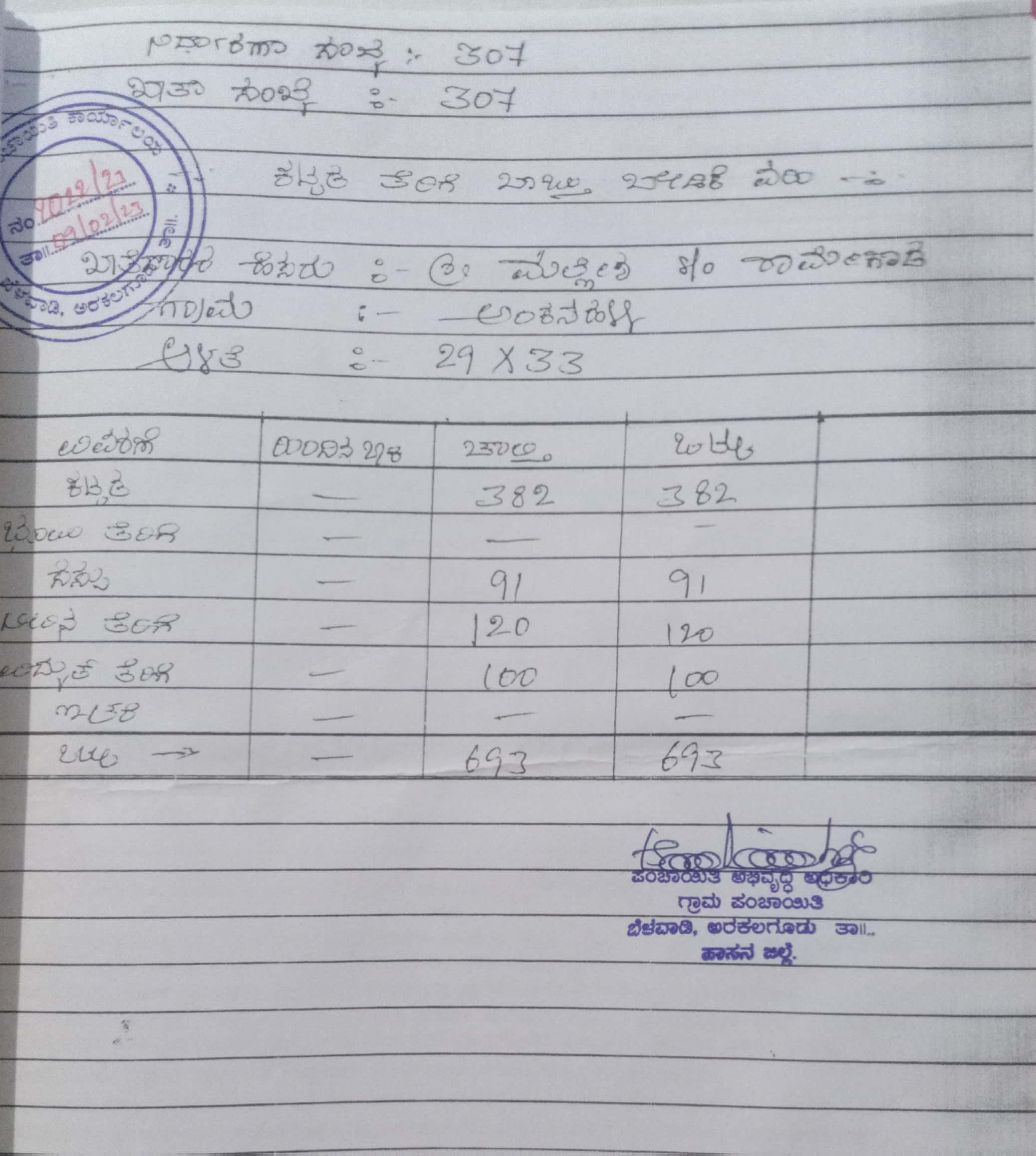 ನಿರ್ಧಾರಣಾ ಸಂಖ್ಯೆ :- 307
ಖಾತಾ ಸಂಖ್ಯೆ :- 307
ಪಂಚಾಯಿತಿ ಕಾರ್ಯಾಲಯ
ನಂ. 2022/23
ತಾ||. 09/02/23
ಬೆಳವಾಡಿ, ಅರಕಲಗೂಡು ತಾ||.
ಕಟ್ಟಡ ತೆರಿಗೆ ಬಾಬ್ತು ಬೇಡಿಕೆ ವಿವರ -:-
ಖಾತೆದಾರರ ಹೆಸರು :- ಶ್ರೀ ಮಲ್ಲೇಶ S/o
ಗ್ರಾಮ :- ಅಂಕನಹಳ್ಳಿ
ಅಳತೆ :- 29 X 33
ವಿವರಣೆ ಹಿಂದಿನ ಬಾಕಿ ಚಾಲ್ತಿ ಒಟ್ಟು
ಕಟ್ಟಡ — 382 382
ಭೂಮಿ ತೆರಿಗೆ — — —
ಸೆಸ್ಸು — 91 91
ನೀರಿನ ತೆರಿಗೆ — 120 120
ವಿದ್ಯುತ್ ತೆರಿಗೆ — 100 100
ಇತರೆ — — —
ಒಟ್ಟು → — 693 693
ಪಂಚಾಯಿತಿ ಅಭಿವೃದ್ಧಿ ಅಧಿಕಾರಿ
ಗ್ರಾಮ ಪಂಚಾಯಿತಿ
ಬೆಳವಾಡಿ, ಅರಕಲಗೂಡು ತಾ||.
ಹಾಸನ ಜಿಲ್ಲೆ.